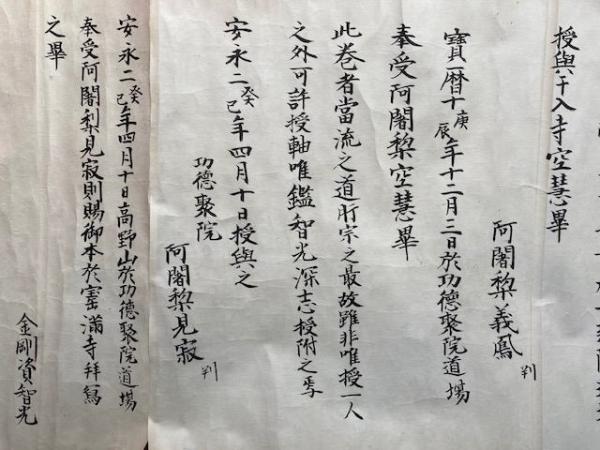 授與于入寺空慧畢
阿闍梨義鳳 判
寶暦十庚辰年十二月三日於功德聚院道場
奉受阿闍梨空慧畢
此卷者當流之道肝宗之最故雖非唯授一人
之外可許授軸唯鑑智光深志授附之焉
安永二癸巳年四月十日授與之
功德聚院
阿闍梨見寂 判
安永二癸巳年四月十日高野山於功德聚院道場
奉受阿闍梨見寂則賜御本於寳滿寺拜寫
之畢
金剛資智光